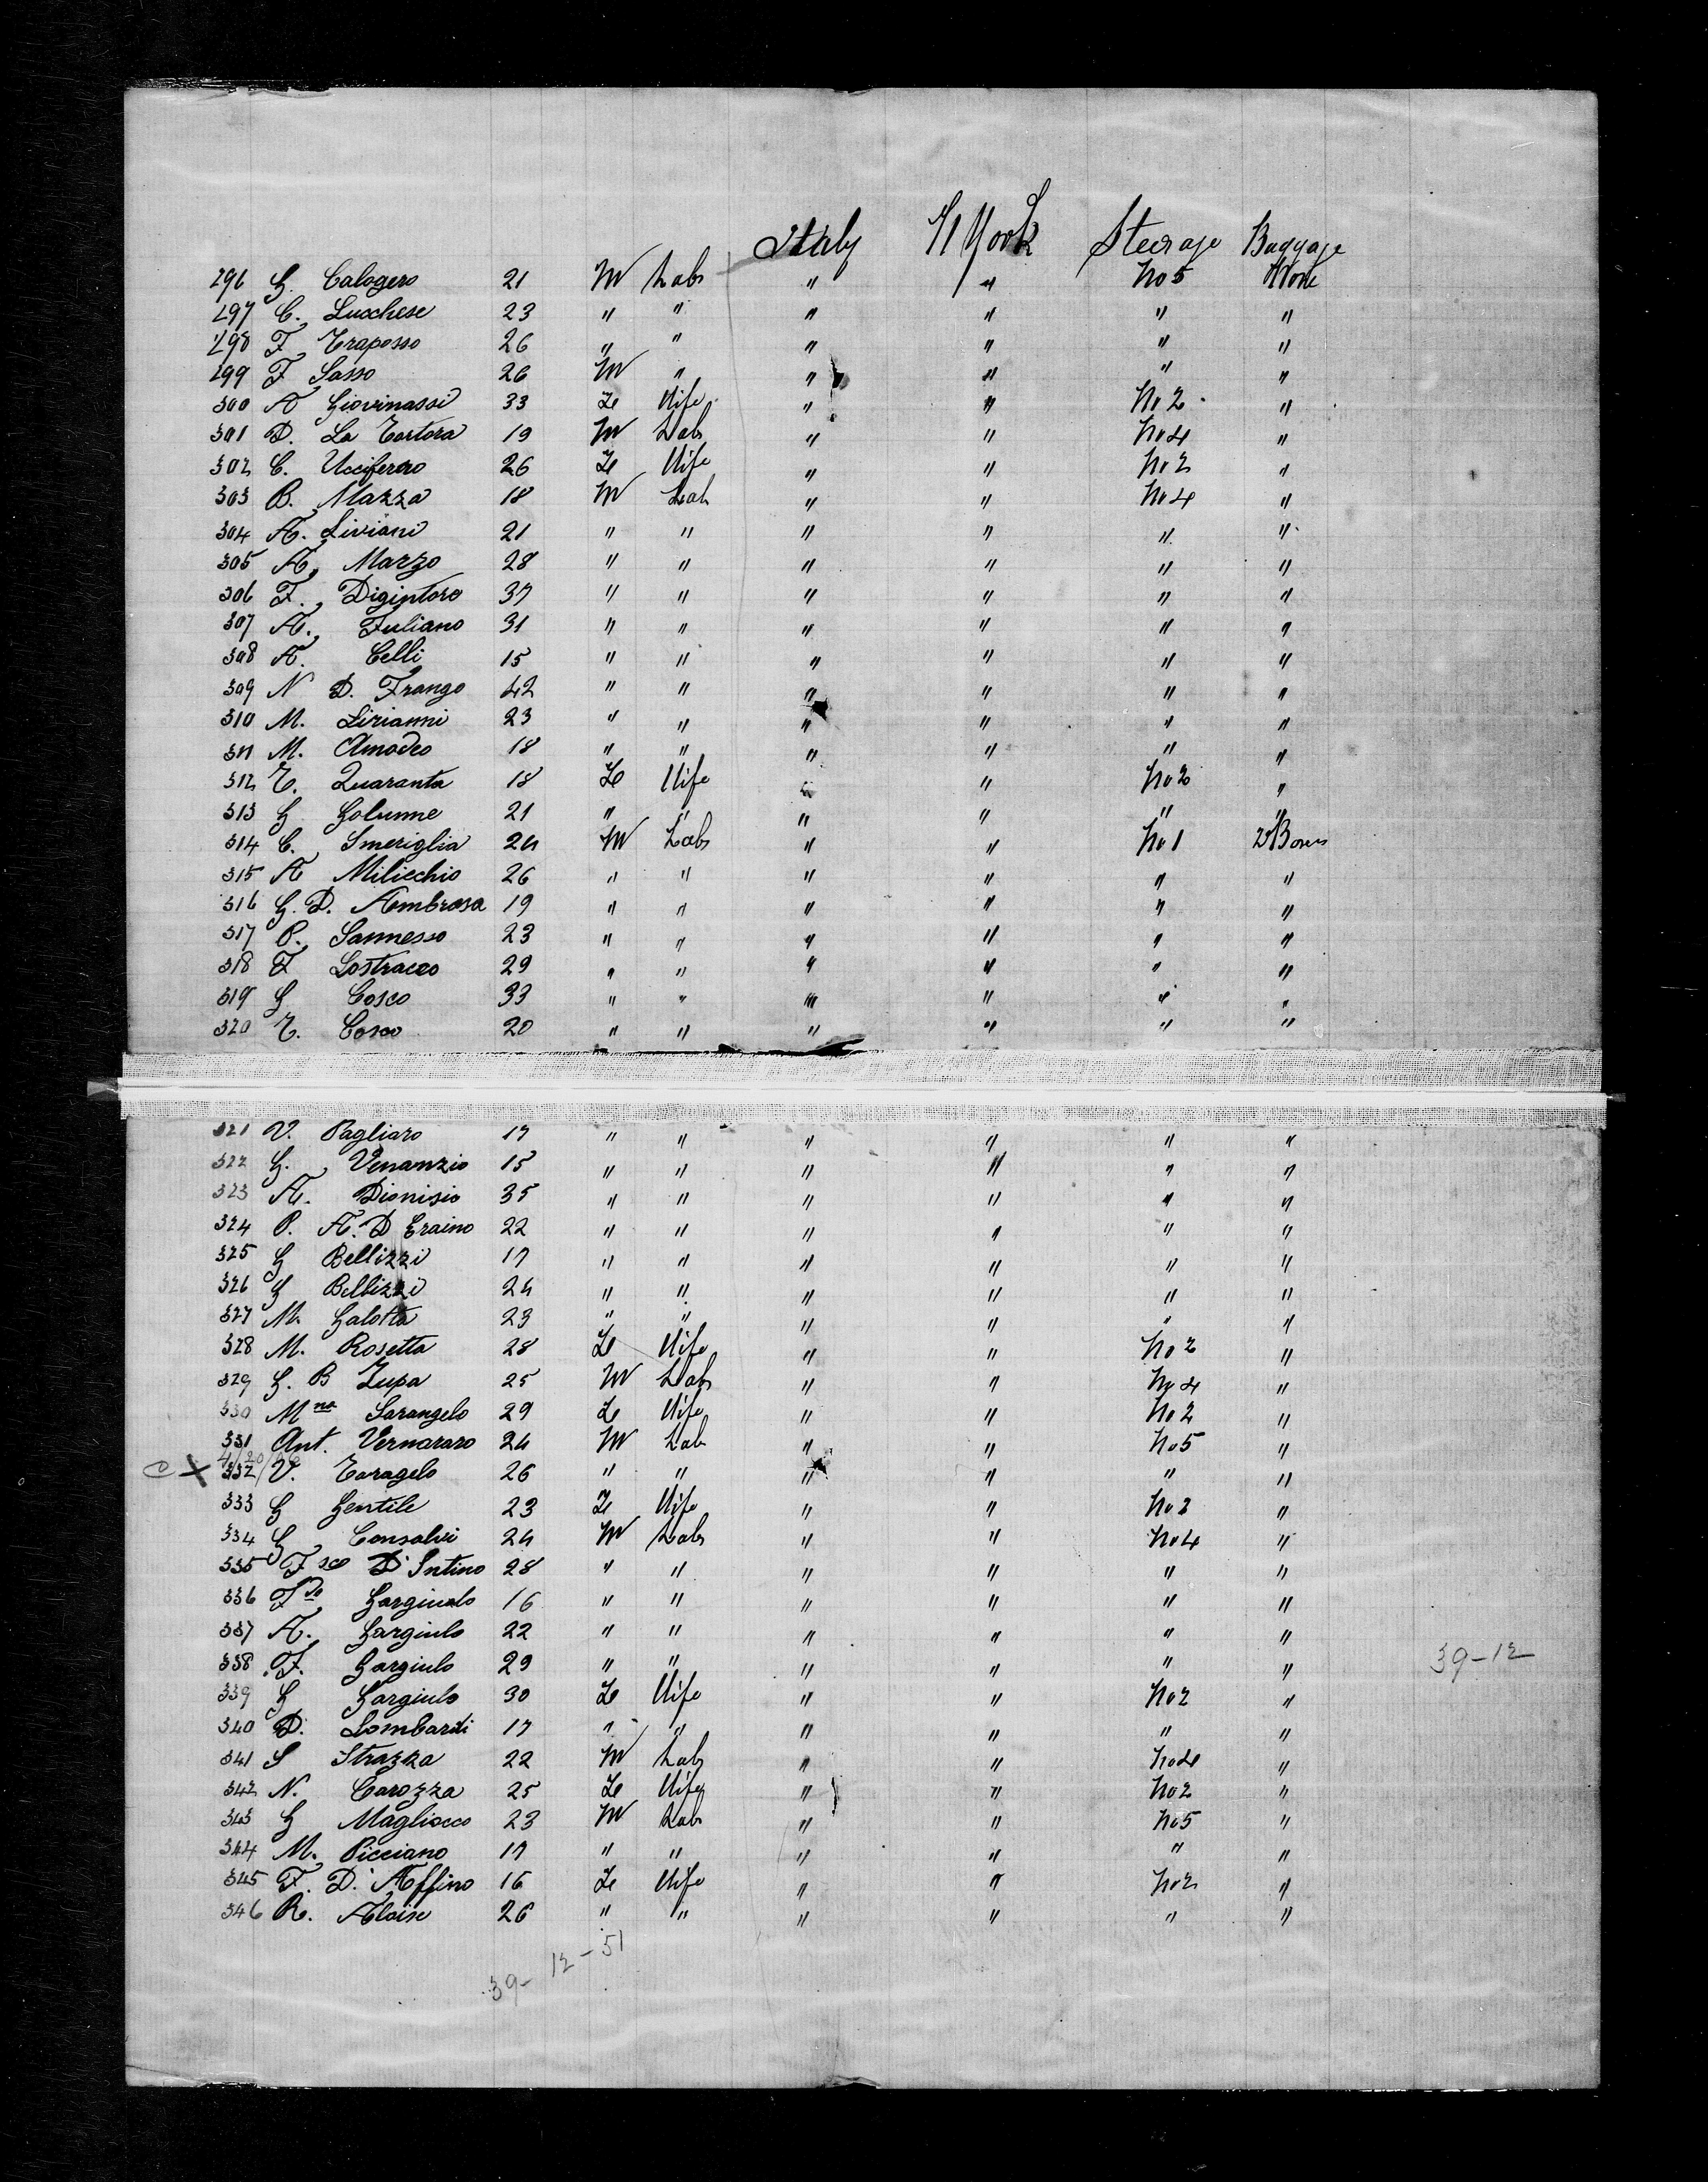 Italy N York Steerage Baggage
296 G. Calogero 21 M Labr " " No 5 None
297 C. Lucchese 23 " " " " " "
298 F Traposso 26 " " " " " "
299 F Sasso 26 M " " " " "
300 A Giovinassi 33 Fe Wife " " No 2 "
301 D. La Tortora 19 M Labr " " No 4 "
302 C. Ucciferro 26 Fe Wife " " No 2 "
303 B. Mazza 18 M Lab " " No 4 "
304 A. Liviani 21 " " " " " "
305 A. Marzo 28 " " " " " "
306 F. Digintore 37 " " " " " "
307 A. Juliano 31 " " " " " "
308 A. Celli 15 " " " " " "
309 N D. Frango 42 " " " " " "
310 M. Lirianni 23 " " " " " "
311 M. Amodeo 18 " " " " " "
312 T. Quaranta 18 Fe Wife " " No 2 "
313 G Golunne 21 " " " " " "
314 C. Smeriglia 24 M Labr " " No 1 2 Boxes
315 A Milicchio 26 " " " " " "
316 G. D. Ambrosa 19 " " " " " "
317 P. Sannesso 23 " " " " " "
318 F Lostracco 29 " " " " " "
319 G Cosco 33 " " " " " "
320 T. Cosco 20 " " " " " "
321 V. Pagliaro 17 " " " " " "
322 G. Venanzio 15 " " " " " "
323 A. Dionisio 35 " " " " " "
324 P. A. D Eraino 22 " " " " " "
325 G Bellizzi 17 " " " " " "
326 G Bellizzi 24 " " " " " "
327 M. Galotta 23 " " " " " "
328 M. Rosetta 28 Fe Wife " " No 2 "
329 G. B Zupa 25 M Labr " " No 4 "
330 Mna Sarangelo 29 Fe Wife " " No 2 "
331 Ant. Vernararo 24 M Lab " " No 5 "
C X 332 V. Taragelo 26 " " " " " "
333 G Gentile 23 Fe Wife " " No 2 "
334 G Consalvi 24 M Labr " " No 4 "
335 Fsco D'Intino 28 " " " " " "
336 Fdo Gargiualo 16 " " " " " "
337 A. Gargiulo 22 " " " " " "
338 F. Gargiulo 29 " " " " " "
39-12
339 G Gargiulo 30 Fe Wife " " No 2 "
340 D. Lombardi 17 " " " " " "
341 S Strazza 22 M Labr " " No 4 "
342 N. Carozza 25 Fe Wife " " No 2 "
343 G Magliocco 23 M Labr " " No 5 "
344 M. Picciano 17 " " " " " "
345 F. D. Affino 16 Fe Wife " " No 2 "
346 R. Aloise 26 " " " " " "
39-12-51